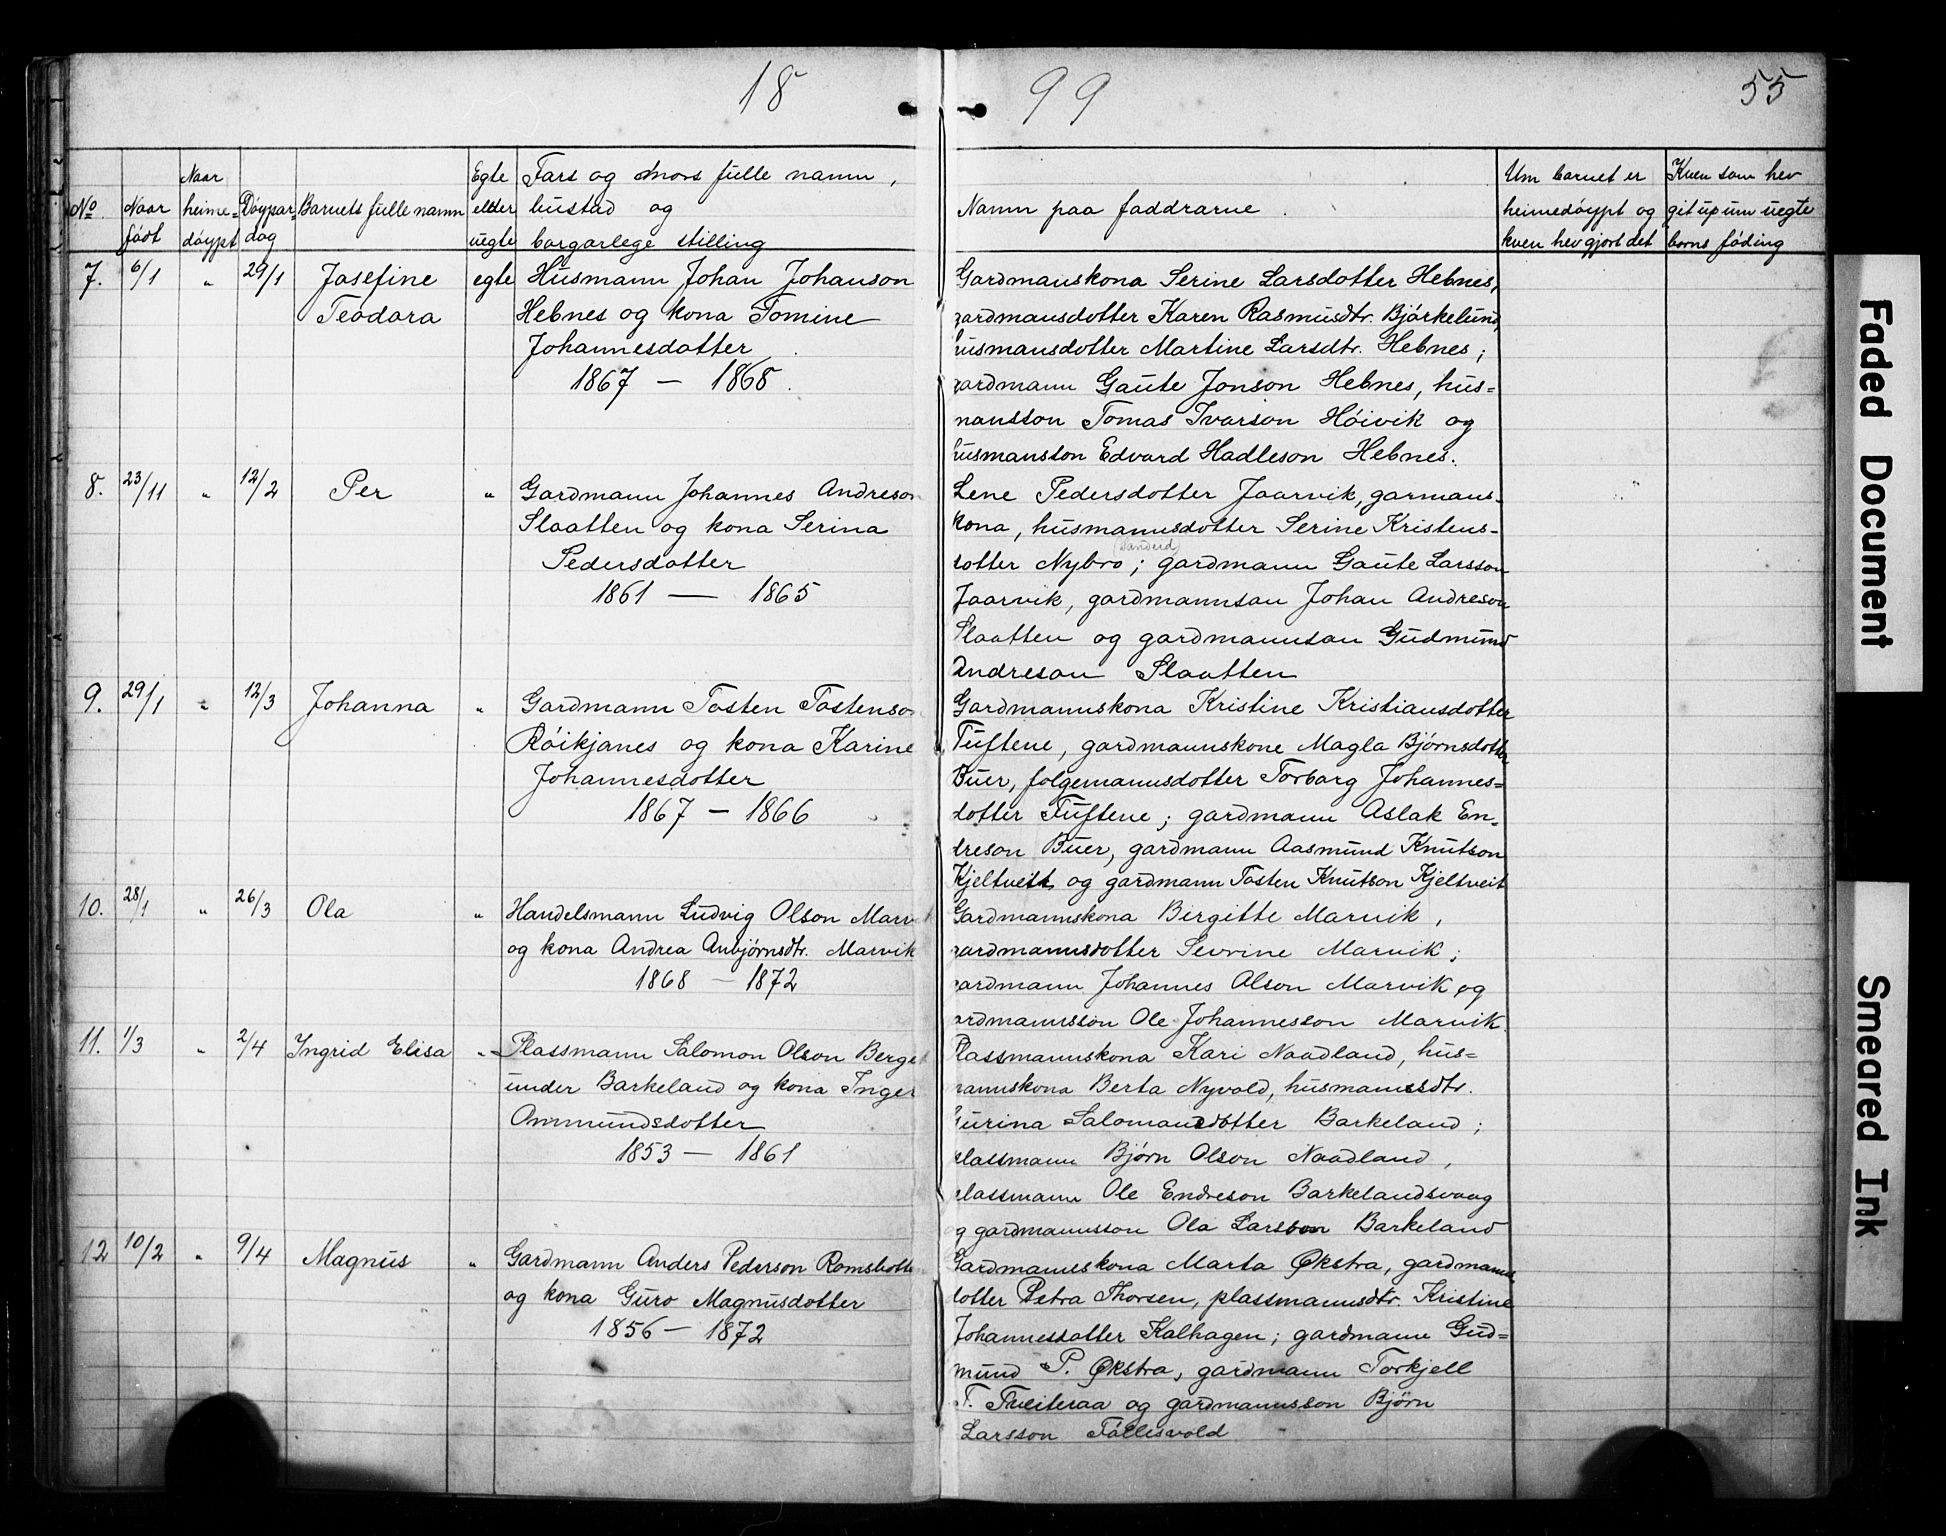 18 99 55
No
Naar født
Naar heimedøypt
Døypardag
Barnets fulle namn
Egte elder uegte
Fars og mors fulle namn, bustad og borgarlege stilling
Namn paa faddrarne
Um barnet er heimedøypt og kven hev gjort det
Kven som hev git upp um uegte borns føding
7. 6/1 " 29/1 Josefine Teodora egte
Husmann Johan Johanson
Hebnes og kona Tomine
Johannesdotter
1867 — 1868.
Gardmanskona Serine Larsdotter Hebnes,
gardmansdotter Karen Rasmusdtr. Bjørkelund,
husmansdotter Martine Larsdtr. Hebnes;
gardmann Gaute Jonson Hebnes, hus-
mansson Tomas Ivarson Høivik og
husmansson Edvard Hadleson Hebnes.
8. 23/11 " 12/2 Per "
Gardmann Johannes Andreson
Slaatten og kona Serina
Pedersdotter
1861 — 1865
Lene Pedersdotter Jaarvik, garmans-
kona, husmannsdotter Serine Kristens-
(Sandeid)
dotter Nybro; gardmann Gaute Larsson
Jaarvik, gardmannson Johan Andreson
Slaatten og gardmannson Gudmund
Andreson Slaatten
9. 29/1 " 12/3 Johanna "
Gardmann Tosten Tostenson
Røikjanes og kona Karine
Johannesdotter
1867 — 1866
Gardmannskona Kristine Kristiansdotter
Tuftene, gardmannskone Magla Bjørnsdotter
Buer, folgemannsdotter Torborg Johannes-
dotter Tuftene; gardmann Aslak En-
dreson Buer, gardmann Aasmund Knutson
Kjeltveit og gardmann Tosten Knutson Kjeltveit
10. 28/1 " 26/3 Ola "
Handelsmann Ludvig Olson Marvik
og kona Andrea Anbjørnsdtr. Marvik
1868 — 1872
Gardmannskona Birgitte Marvik,
gardmannsdotter Sevrine Marvik;
gardmann Johannes Olson Marvik og
gardmannsson Ole Johannesson Marvik.
11. 1/3 " 2/4 Ingrid Elisa "
Plassmann Salomon Olson Berge
under Barkeland og kona Inger
Ommundsdotter
1853 — 1861
Plassmannskona Kari Naadland, hus-
mannskona Berta Nyvold, husmannsdtr.
Gurina Salomonsdotter Barkeland;
plassmann Bjørn Olson Naadland,
plassmann Ole Endreson Barkelandsvaag
og gardmannsson Ola Larsson Barkeland
12 10/2 " 9/4 Magnus "
Gardmann Anders Pederson
og kona Guro Magnusdotter
1856 — 1872
Gardmannskona Marta Økstra, gardmanns-
dotter Petra Thorsen, plassmannsdtr. Kristine
Johannesdotter Kalhagen; gardmann Gud-
mund P. Økstra, gardmann Torkjell
T. Tveiteraa og gardmannsson Bjørn
Larsson
Faded Document
Smeared Ink